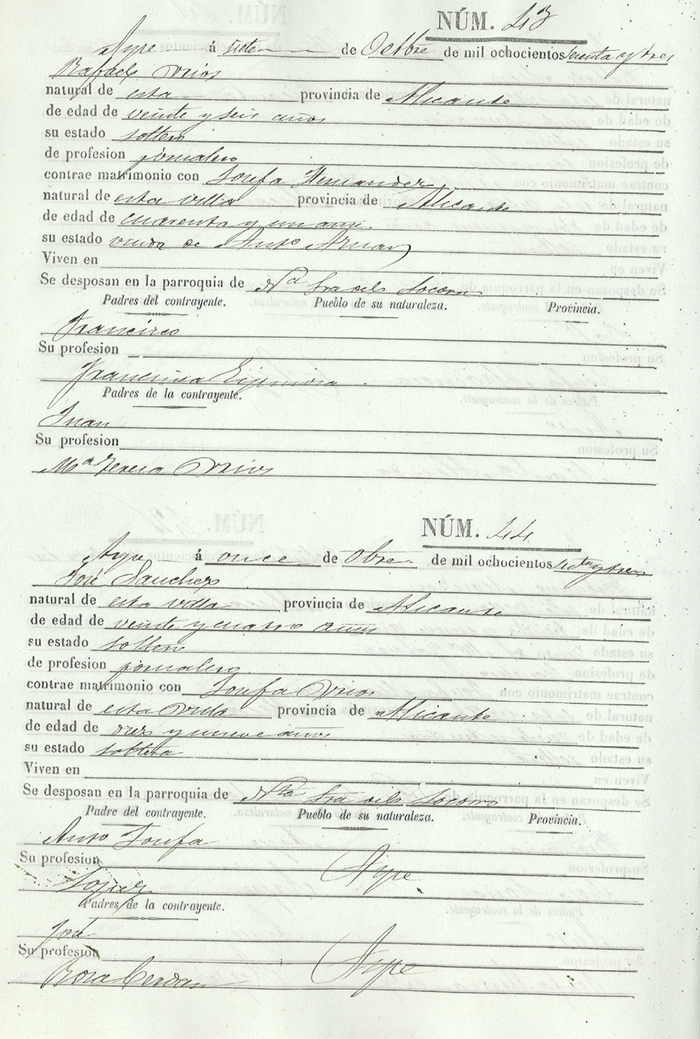 NÚM. 43
Aspe á siete de Octbre de mil ochocientos setenta y tres
Rafael
natural de esta provincia de Alicante
de edad de veinte y seis años
su estado soltero
de profesion jornalero
contrae matrimonio con Josefa Hernandez
natural de esta villa provincia de Alicante
de edad de cuarenta y un años
su estado viuda de Anto
Viven en
Se desposan en la parroquia de Nª Sra del Socorro
Padres del contrayente. Pueblo de su naturaleza. Provincia.
Francisco
Su profesion
Francisca Espinosa
Padres de la contrayente.
Juan
Su profesion
Mª Teresa
NÚM. 44
Aspe á once de Obre de mil ochocientos setta y tres
José Sanchez
natural de esta villa provincia de Alicante
de edad de veinte y cuatro años
su estado soltero
de profesion jornalero
contrae matrimonio con Josefa
natural de esta villa provincia de Alicante
de edad de diez y nueve años
su estado soltera
Viven en
Se desposan en la parroquia de Ntra Sra del Socorro
Padre del contrayente. Pueblo de su naturaleza. Provincia.
Anto Josefa
Su profesion Aspe
Lopez
Padres de la contrayente.
José
Su profesion Aspe
Rosa Cerdan